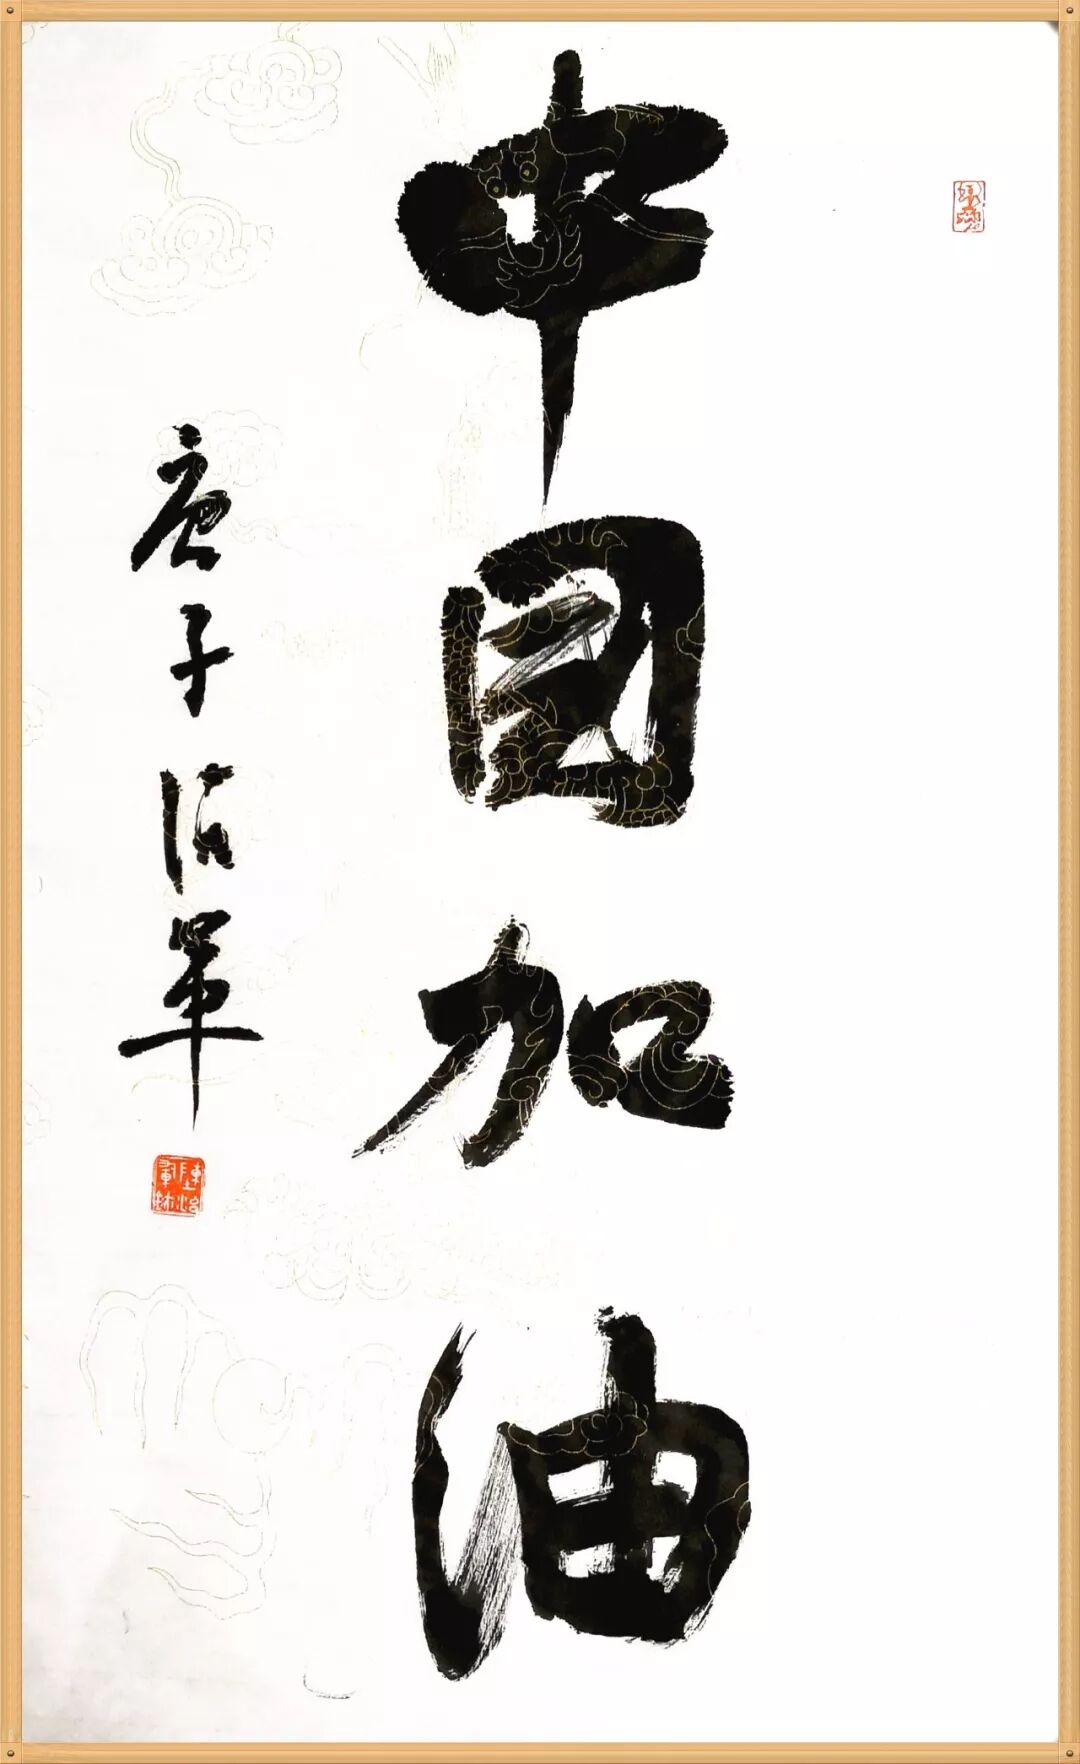 中国加油
庚子治军